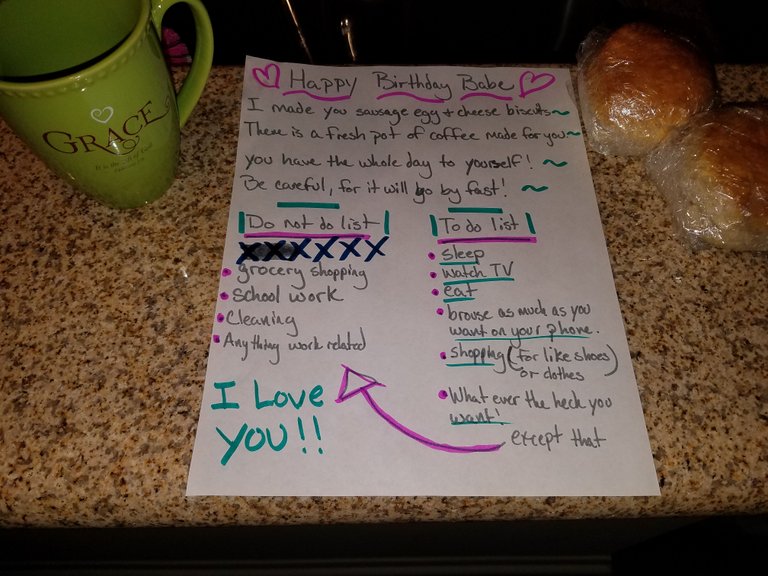 GRACE
Happy Birthday Babe
I made you sausage egg + cheese biscuits~
There is a fresh pot of coffee made for you~
you have the whole day to yourself! ~
Be careful, for it will go by fast! ~
Do not do list
XXXXXX
grocery shopping
School work
Cleaning
Anything work related
I Love
YOU!!
To do list
sleep
watch TV
eat
brouse as much as you
want on your phone.
shopping (for like shoes
or clothes)
What ever the heck you
want!
except that